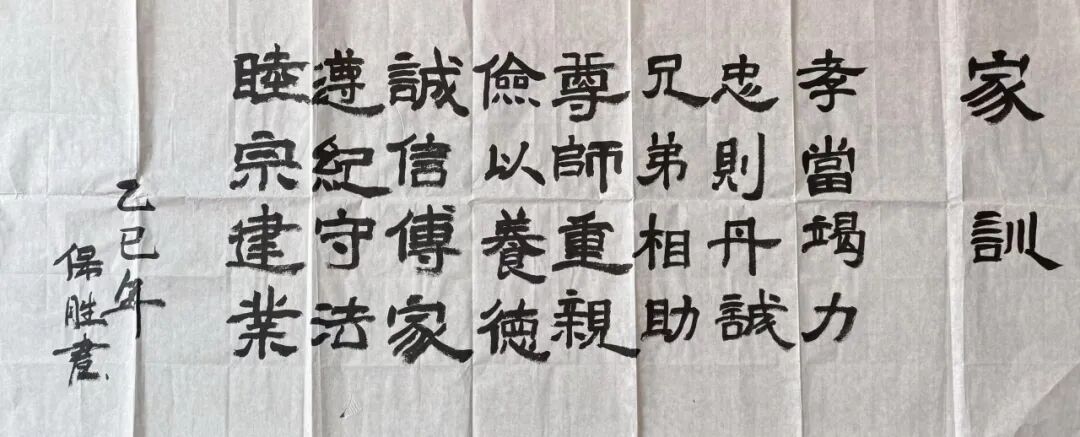 家訓
孝當竭力
忠則丹誠
兄弟相助
尊師重親
儉以養德
誠信傳家
遵紀守法
睦宗建業
乙巳年
保胜書